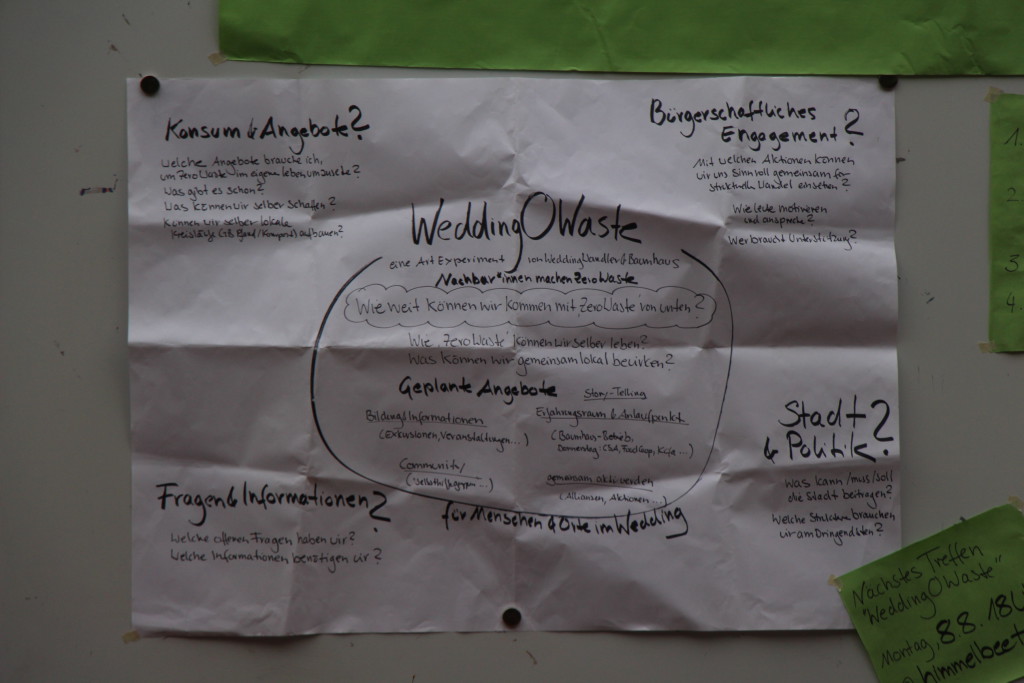 Konsum & Angebote?
Welche Angebote brauche ich,
um ZeroWaste im eigene leben umzusetze?
Was gibt es schon?
Was können wir selber schaffen?
Können wir selber lokale
Kreisläufe (z.B. Pfand/Kompost) aufbauen?
Bürgerschaftliches
Engagement?
Mit welchen Aktionen können
wir uns sinnvoll gemeinsam für
strukturellen Wandel einsetzen?
Wie leute motivieren
und ansprechen?
Wer braucht Unterstützung?
Wedding0Waste
eine Art Experiment von WeddingWandler & Baumhaus
Nachbar*innen machen ZeroWaste
Wie weit können wir kommen mit 'ZeroWaste' von unten?
Wie 'ZeroWaste' können wir selber leben?
Was können wir gemeinsam lokal bewirken?
Geplante Angebote
Story-Telling
Bildung & Informationen
(Exkursionen, Veranstaltungen...)
Erfahrungsraum & Anlaufpunkt
(Baumhaus-Betrieb,
Donnerstag: CSA, FoodCoop, Küfa...)
Community
("Selbsthilfegruppe"...)
gemeinsam aktiv werden
(Allianzen, Aktionen...)
für Menschen & Orte im Wedding
Stadt
& Politik?
Was kann/muss/soll
die Stadt beitragen?
Welche Strukturen brauchen
wir am Dringendsten?
Fragen & Informationen?
Welche offenen Fragen haben wir?
Welche Informationen benötigen wir?
1.
2.
3.
4.
Nächstes Treffen
"Wedding0Waste"
Montag, 8.8. 18U
@ himmelbeet